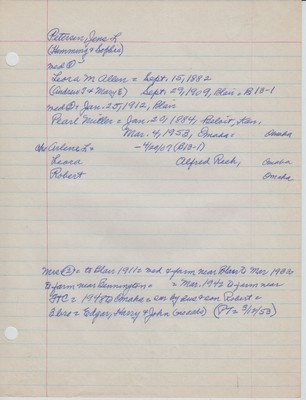 Petersen, Jens L
(Hemming & Sophie)
med ①
Leora M Allen = Sept. 15, 1882
(Andrew J & Mary E) Sept. 29, 1909, Blair = B10-1
med ② = Jan. 25, 1912, Blair
Pearl Miller = Jan. 20, 1884, Beloit, Kan.
Mar. 4, 1953, Omaha = Omaha
Arlens L = -4/20/07 (B10-1)
Leora Alfred Rech, Omaha
Robert Omaha
Mrs ② = to Blair 1911 = med & farm near Blair to Mar 1903
to farm near Bennington = = Mar. 1942 to farm near
= 1948 to Omaha = sur by dau & son Robert =
Bros = Edgar, Harry & John (PT = 3/12/53)